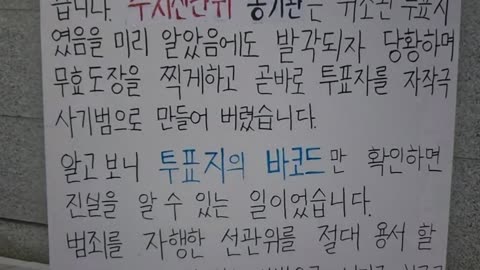 습니다. 수지선관위 홍기관은 위조된 투표지
였음을 미리 알았음에도 발각되자 당황하며
무효도장을 찍게하고 곧바로 투표자를 자작극
사기범으로 만들어 버렸습니다.
알고보니 투표지의 바코드만 확인하면
진실을 알 수 있는 일이었습니다.
범죄를 자행한 선관위를 절대 용서 할